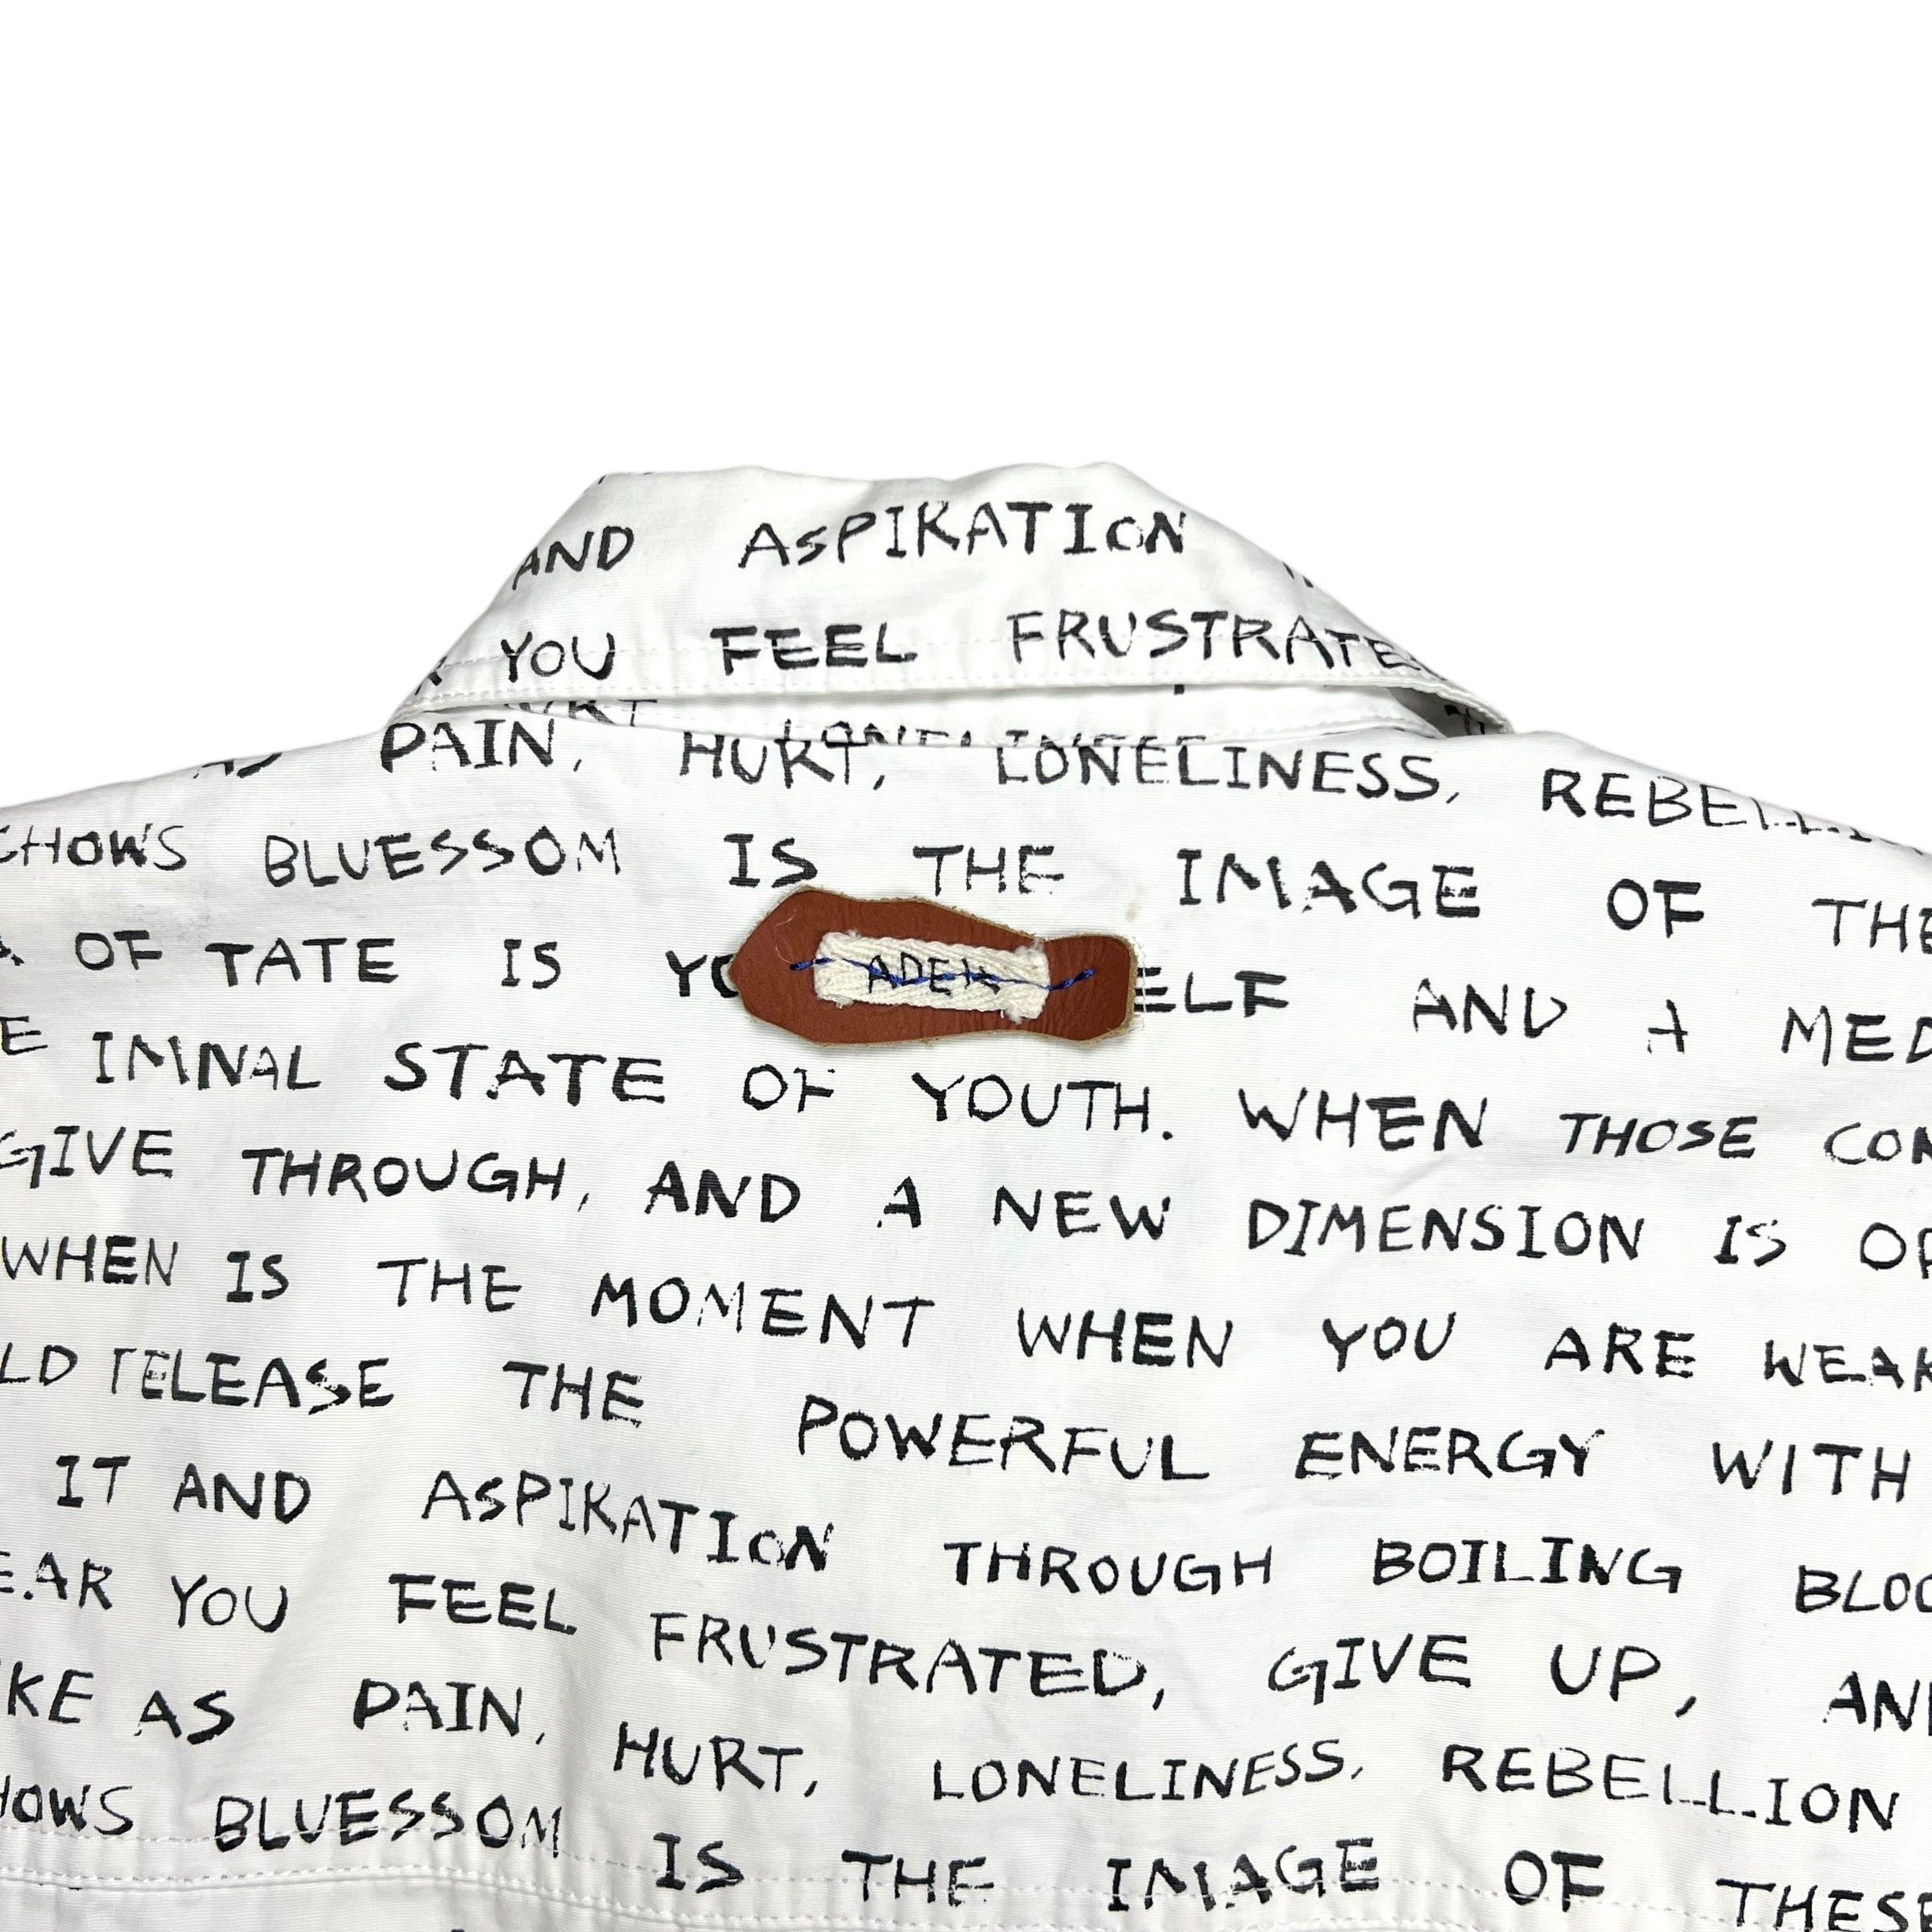 AND ASPIRATION
YOU FEEL FRUSTRATE
AS PAIN, HURT, LONELINESS, REBELLIO
CHOWS BLUESSOM IS THE IMAGE OF THE
OF TATE IS YO ELF AND A MED
ADER
E IMNAL STATE OF YOUTH. WHEN THOSE CON
GIVE THROUGH, AND A NEW DIMENSION IS OP
WHEN IS THE MOMENT WHEN YOU ARE WEAK
LD RELEASE THE POWERFUL ENERGY WITH
IT AND ASPIRATION THROUGH BOILING BLOO
EAR YOU FEEL FRUSTRATED, GIVE UP, AN
IKE AS PAIN, HURT, LONELINESS, REBELLION
HOWS BLUESSOM IS THE IMAGE OF THESE